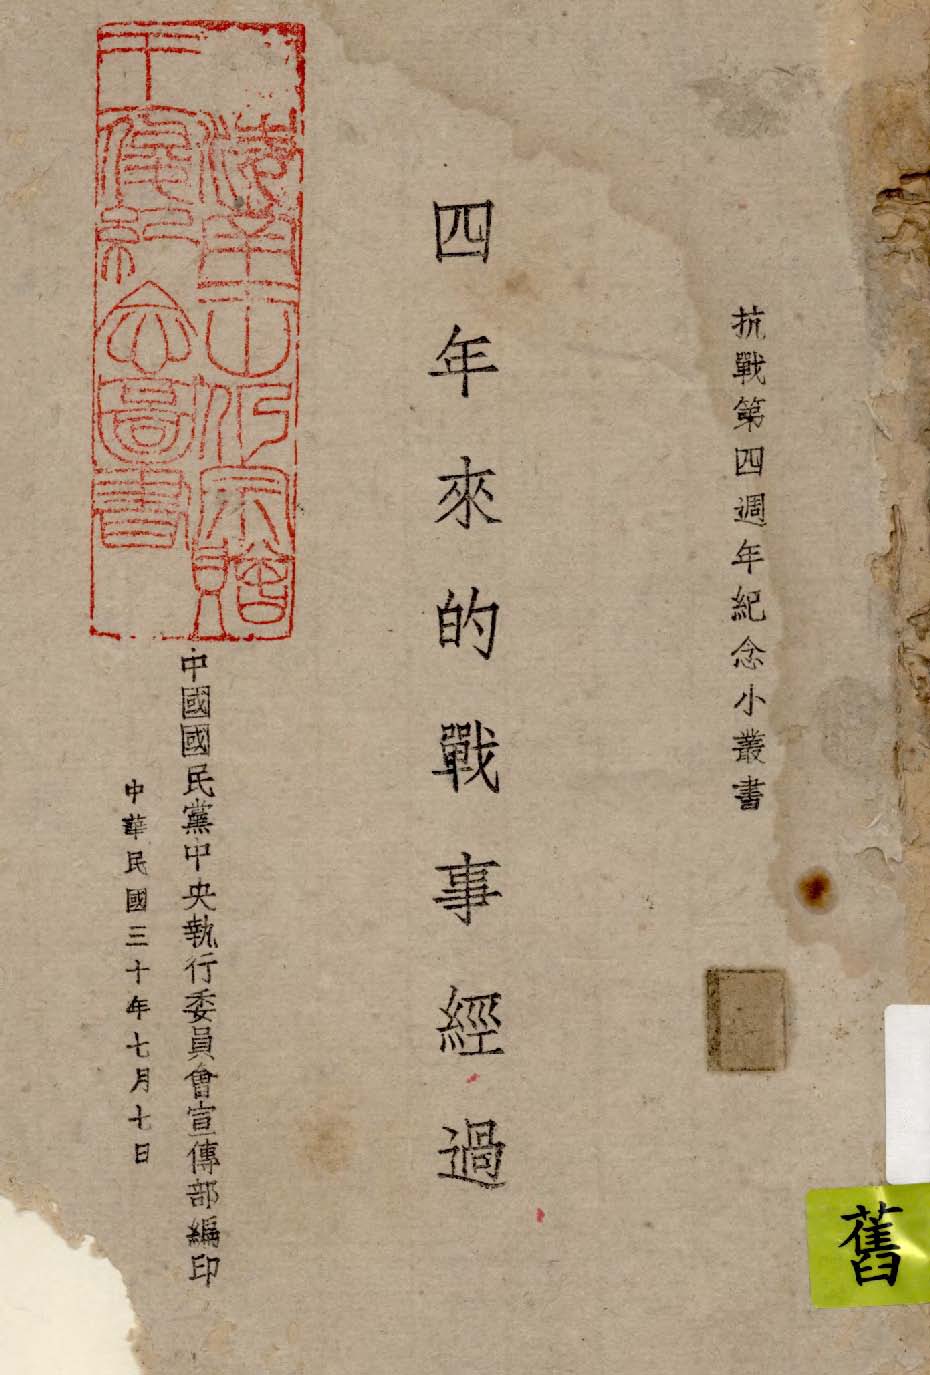 抗戰第四週年紀念小叢書
四年來的戰事經過
中國國民黨中央執行委員會宣傳部編印
中華民國三十年七月七日
紀念圖書
舊